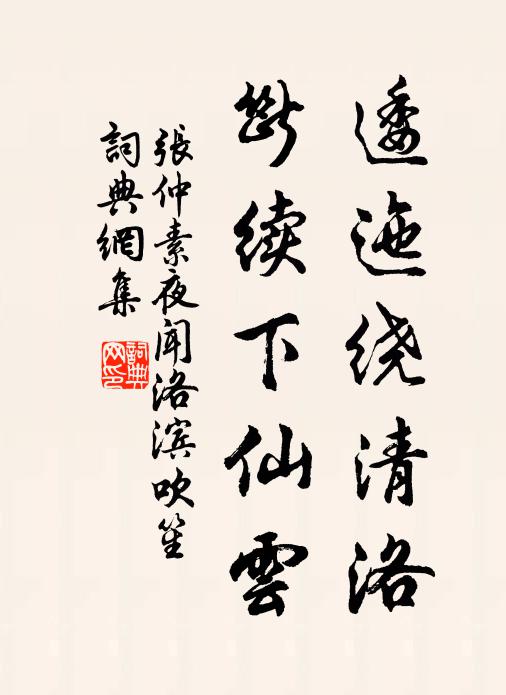 逶迤绕清洛
斷续下仙雲
張仲素夜闻洛滨吹笙
詞典網集
詞典
网印